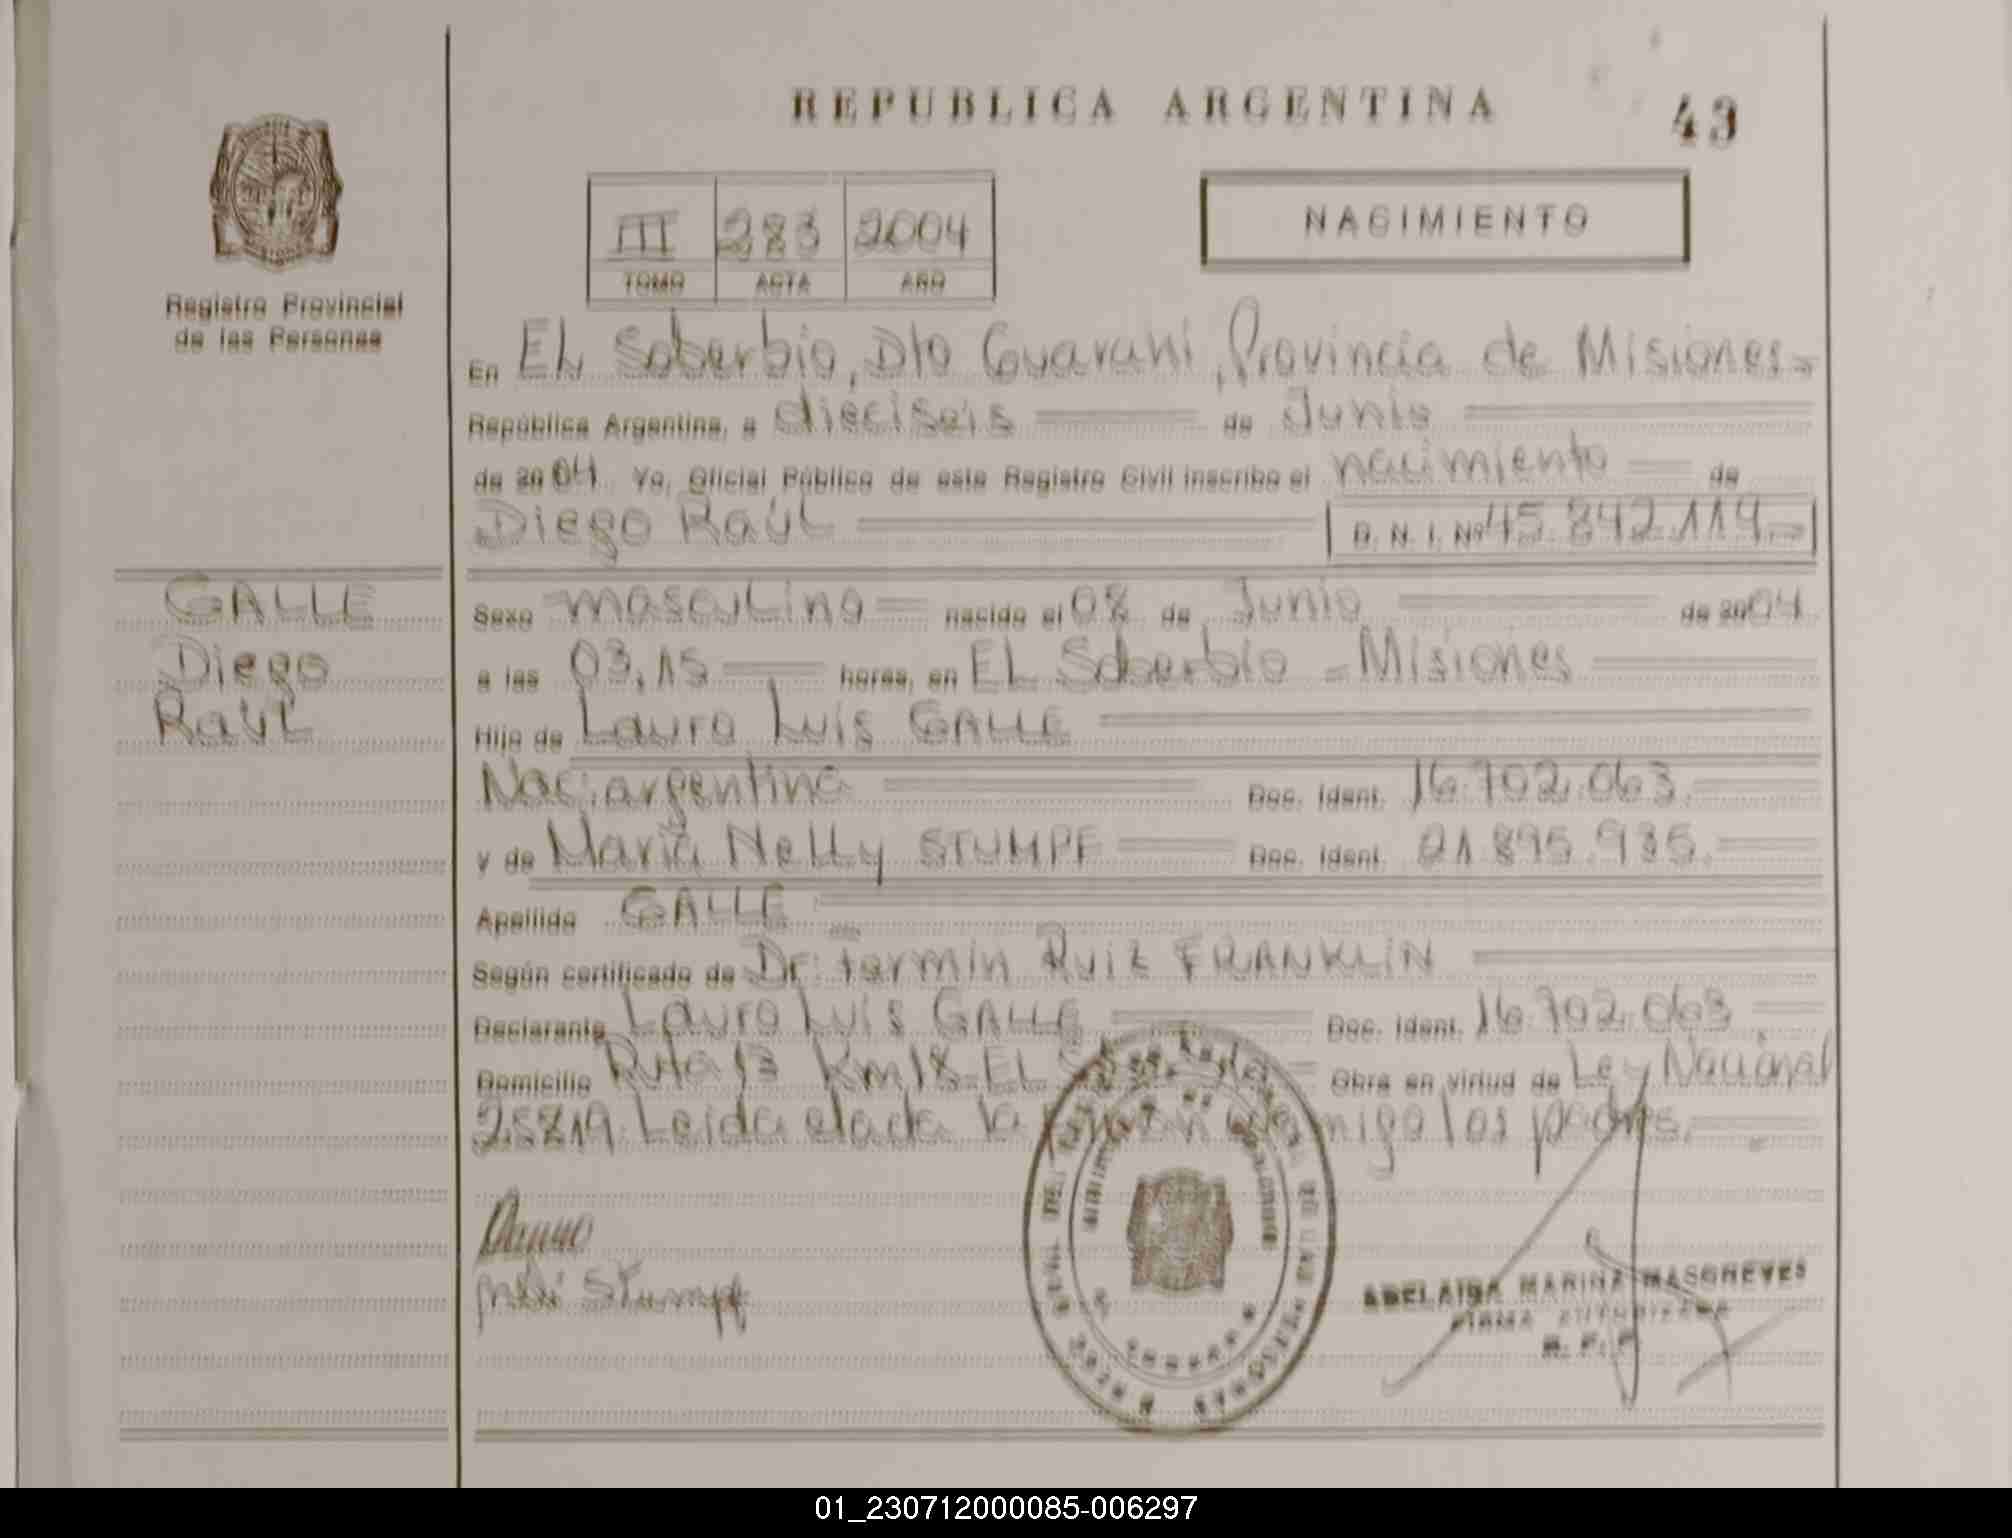 REPUBLICA ARGENTINA
43
III 283 2004
TOMO ACTA AÑO
NACIMIENTO
Registro Provincial
de las Personas
En EL Soberbio, Dto Guaraní, Provincia de Misiones
República Argentina, a dieciseis de Junio
de 2004. Yo, Oficial Público de este Registro Civil inscribo el nacimiento de
Diego Raúl D. N. I. Nº 45.842.114.-
GALLE
Diego
Raúl
Sexo masculino nacido el 08 de Junio de 2004
a las 03,15 horas, en EL Soberbio - Misiones
Hijo de Lauro Luis GALLE
Nac: argentina Doc. Ident. 16.702.063.
y de María Nelly STUMPF Doc. Ident. 21.895.935.
Apellido GALLE
Según certificado de Dr: Fermín Ruiz FRANKLIN
Declarante Lauro Luis GALLE Doc. Ident. 16.702.063
Domicilio Ruta 13 Km 18 - EL Obra en virtud de Ley Nacional
25819. Leida el acta la los padres.
Stumpf
MARINA
FIRMA AUTORIZADA
01_230712000085-006297